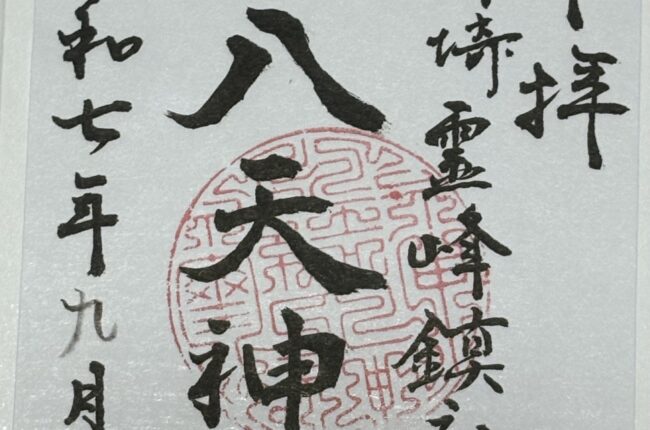 拝
埼霊峰鎮
八天神
和七年九月